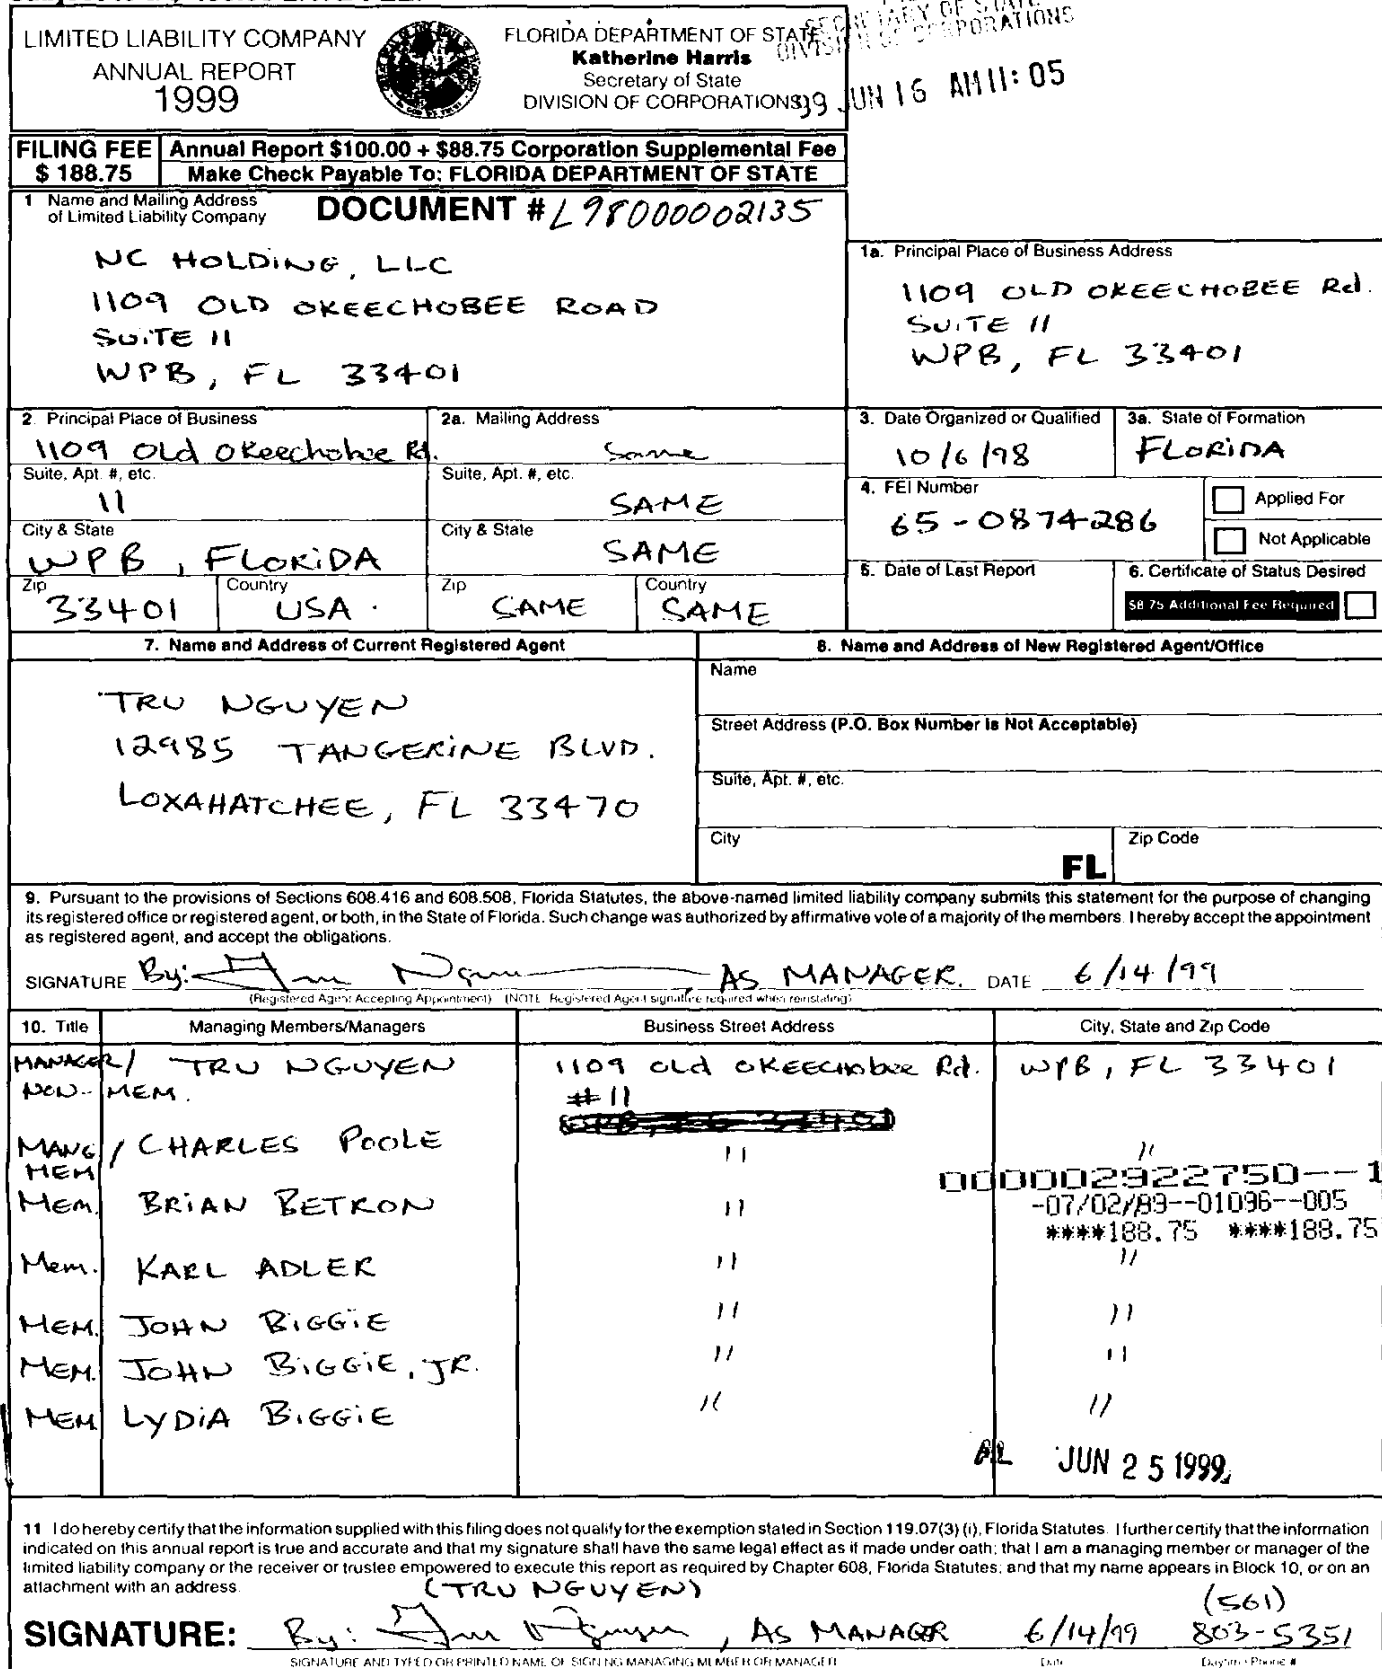 LIMITED LIABILITY COMPANY
ANNUAL REPORT
1999
FLORIDA DEPARTMENT OF STATE
Katherine Harris
Secretary of State
DIVISION OF CORPORATIONS
SECRETARY OF STATE
DIVISION OF CORPORATIONS
99 JUN 16 AM 11:05
FILING FEE
$ 188.75
Annual Report $100.00 + $88.75 Corporation Supplemental Fee
Make Check Payable To: FLORIDA DEPARTMENT OF STATE
1 Name and Mailing Address
of Limited Liability Company
DOCUMENT # L98000002135
NC HOLDING, LLC
1109 OLD OKEECHOBEE ROAD
SUITE 11
WPB, FL 33401
1a. Principal Place of Business Address
1109 OLD OKEECHOBEE Rd.
SUITE 11
WPB, FL 33401
2. Principal Place of Business
1109 Old Okeechobee Rd.
Suite, Apt. #, etc.
11
City & State
WPB, FLORIDA
Zip
33401
Country
USA.
2a. Mailing Address
Same
Suite, Apt. #, etc.
SAME
City & State
SAME
Zip
SAME
Country
SAME
3. Date Organized or Qualified
10/6/98
3a. State of Formation
FLORIDA
4. FEI Number
65-0874286
Applied For
Not Applicable
5. Date of Last Report
6. Certificate of Status Desired
$8.75 Additional Fee Required
7. Name and Address of Current Registered Agent
TRU NGUYEN
12985 TANGERINE BLVD.
LOXAHATCHEE, FL 33470
8. Name and Address of New Registered Agent/Office
Name
Street Address (P.O. Box Number is Not Acceptable)
Suite, Apt. #, etc.
City
FL
Zip Code
9. Pursuant to the provisions of Sections 608.416 and 608.508, Florida Statutes, the above-named limited liability company submits this statement for the purpose of changing
its registered office or registered agent, or both, in the State of Florida. Such change was authorized by affirmative vote of a majority of the members. I hereby accept the appointment
as registered agent, and accept the obligations.
SIGNATURE By: AS MANAGER. DATE 6/14/99
(Registered Agent Accepting Appointment) (NOTE Registered Agent signature required when reinstating)
10. Title Managing Members/Managers Business Street Address City, State and Zip Code
MANAGER/ TRU NGUYEN 1109 Old OKEECHobee Rd. WPB, FL 33401
NON-MEM. #11
MANG/ CHARLES POOLE " "
MEM
000002922750--1
Mem. BRIAN BETRON "
-07/02/99--01096--005
****188.75 ****188.75
Mem. KARL ADLER " "
MEM. JOHN BIGGIE " "
MEM. JOHN BIGGIE, JR. " "
MEM LYDIA BIGGIE " "
AL JUN 25 1999
11 I do hereby certify that the information supplied with this filing does not qualify for the exemption stated in Section 119.07(3) (i), Florida Statutes. I further certify that the information
indicated on this annual report is true and accurate and that my signature shall have the same legal effect as if made under oath; that I am a managing member or manager of the
limited liability company or the receiver or trustee empowered to execute this report as required by Chapter 608, Florida Statutes; and that my name appears in Block 10, or on an
attachment with an address.
(TRU NGUYEN)
(561)
SIGNATURE: By: Tru Nguyen, AS MANAGER 6/14/99 803-5351
SIGNATURE AND TYPED OR PRINTED NAME OF SIGNING MANAGING MEMBER OR MANAGER Date Daytime Phone #